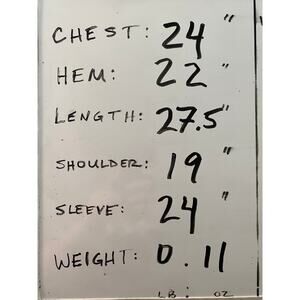 CHEST: 24"
HEM: 22"
LENGTH: 27.5"
SHOULDER: 19"
SLEEVE: 24"
WEIGHT: 0.11
LB: OZ